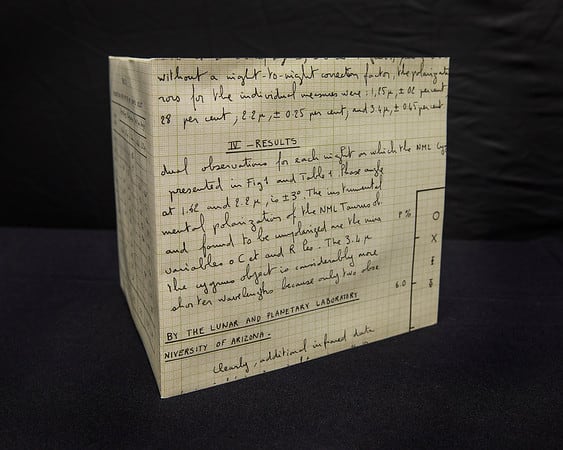 without a night-to-night correction factor, the polarizat
rors for the individual measures were: 1,25μ, ± 02 percent
28 per cent, 2.2μ, ± 0.25 per cent, and 3.4μ, ± 0.45 per cent
IV - RESULTS
dual observations for each night on which the NML Cyg
presented in Fig 1 and Table 1. Phase angle
at 1.62 and 2.2μ, is ± 3°. The instrumental
mental polarization of the NML Taurus ob
and found to be unpolarized are the
variables o Cet and R Leo. The 3.4μ
the cygnus object is considerably more
shorter wavelengths because only two obse
P %
O
X
6.0
BY THE LUNAR AND PLANETARY LABORATORY
NIVERSITY OF ARIZONA.
Clearly, additional infrared data